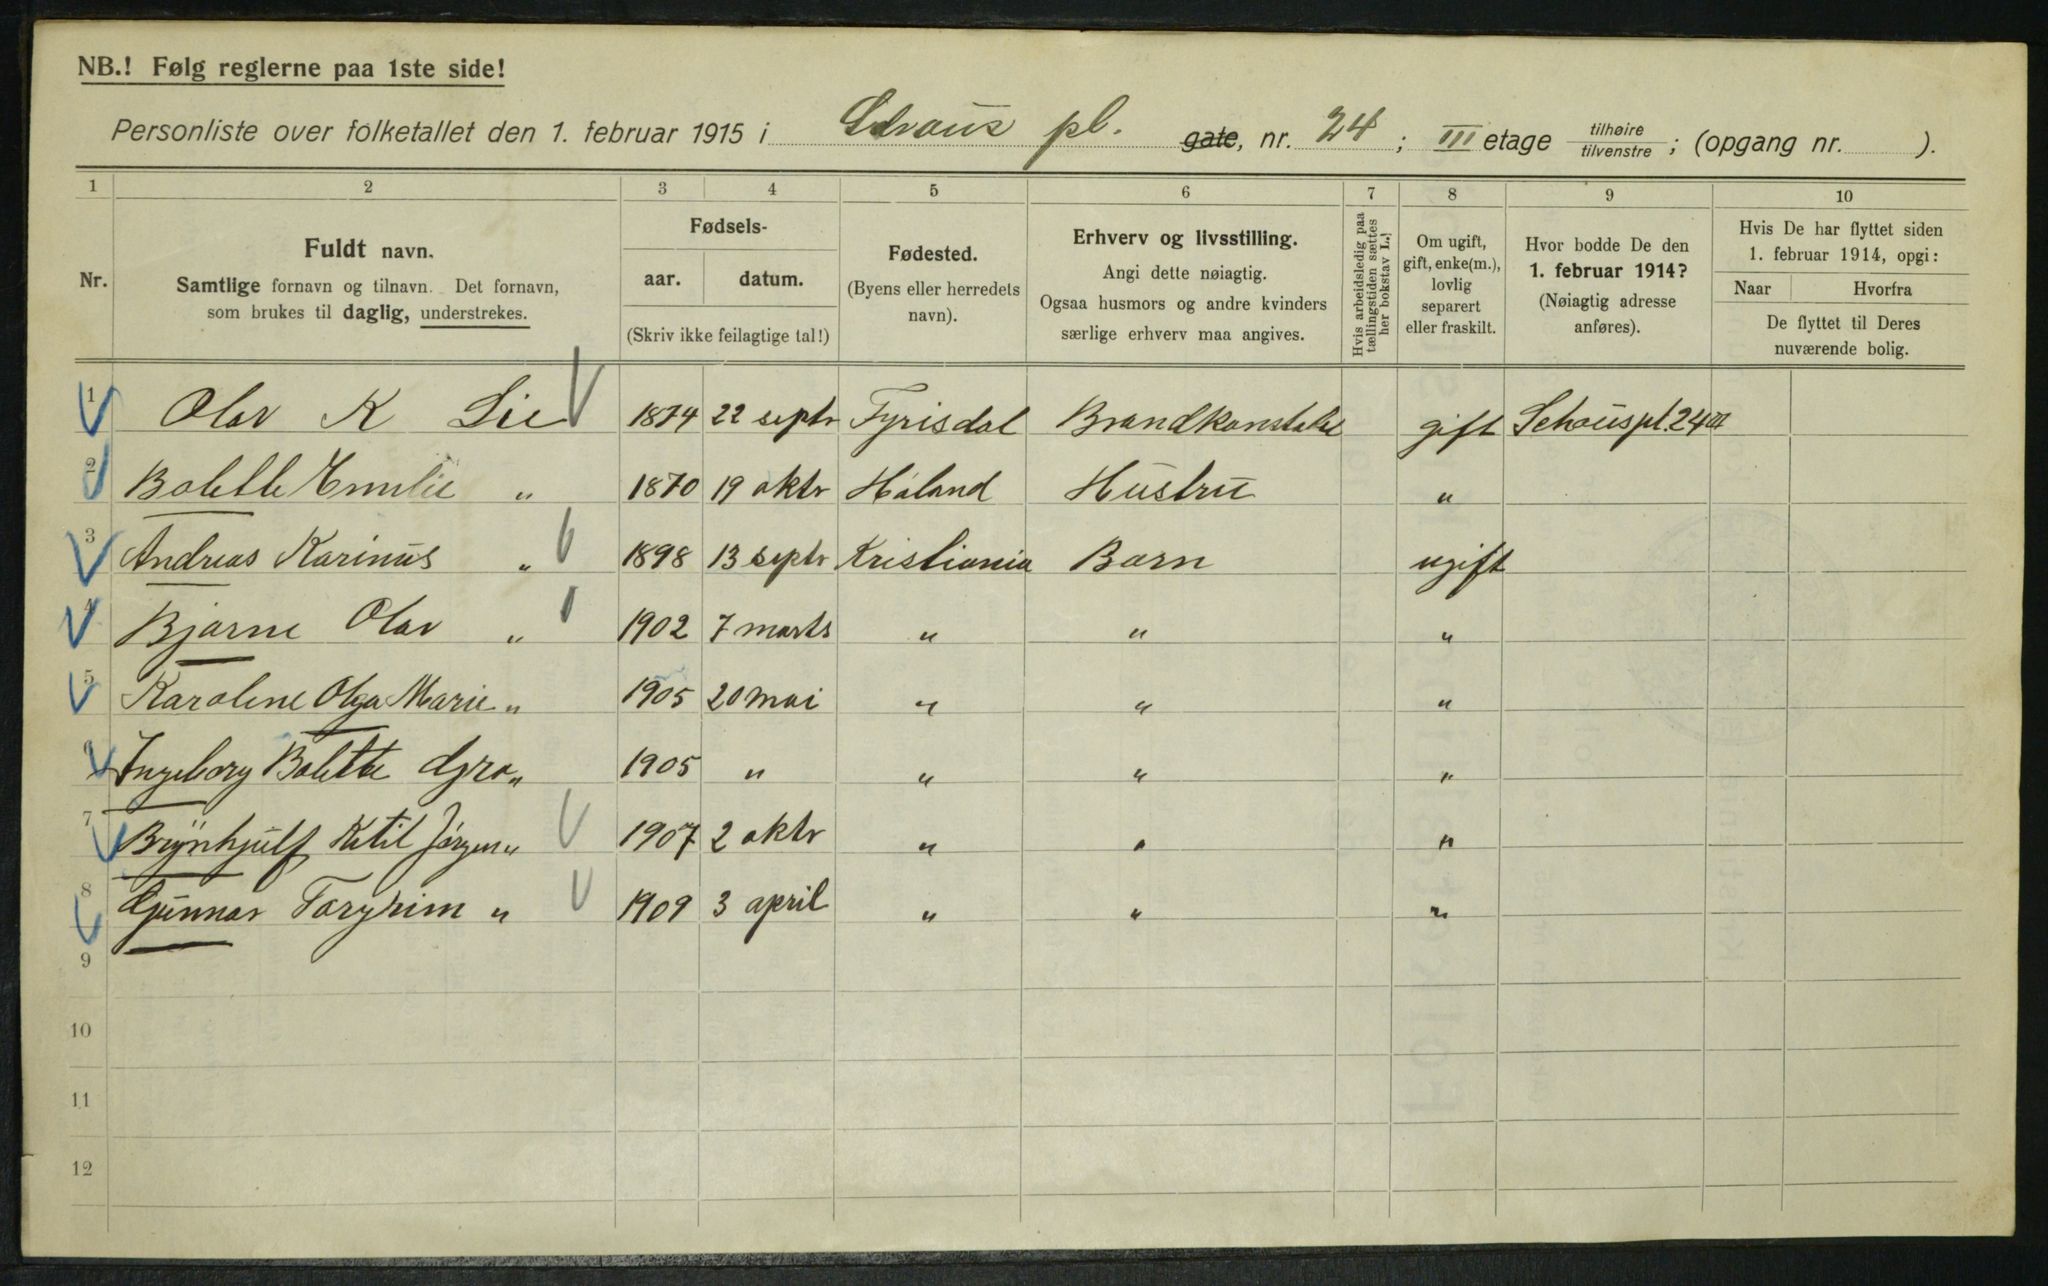 NB.! Følg reglerne paa 1ste side!
Personliste over folketallet den 1. februar 1915 i Schous pl. gate, nr. 24; III etage tilhøire tilvenstre; (opgang nr. ).
1 2 3 4 5 6 7 8 9 10
Nr.
Fuldt navn.
Samtlige fornavn og tilnavn. Det fornavn,
som brukes til daglig, understrekes.
Fødsels-
aar. datum.
(Skriv ikke feilagtige tal!)
Fødested.
(Byens eller herredets
navn).
Erhverv og livsstilling.
Angi dette nøiagtig.
Ogsaa husmors og andre kvinders
særlige erhverv maa angives.
Hvis arbeidsledig paa
tællingstiden sættes
her bokstav L.!
Om ugift,
gift, enke(m.),
lovlig
separert
eller fraskilt.
Hvor bodde De den
1. februar 1914?
(Nøiagtig adresse
anføres).
Hvis De har flyttet siden
1. februar 1914, opgi:
Naar Hvorfra
De flyttet til Deres
nuværende bolig.
1 Olav K Lie 1874 22 septr Fyrisdal Brandkonstabel gift Schouspl. 24 III
2 Bolette Emilie " 1870 19 oktr Håland Hustru "
3 Andreas Karinus " 1898 13 septr Kristiania Barn ugift
4 Bjarne Olav " 1902 7 marts " " "
5 Karoline Olga Marie " 1905 20 mai " " "
6 Ingeborg Bolette Gro " 1905 " " " "
7 Brynhjulf Ketil Jørgen " 1907 2 oktr " " "
8 Gunnar Torgrim " 1909 3 april " " "
9
10
11
12